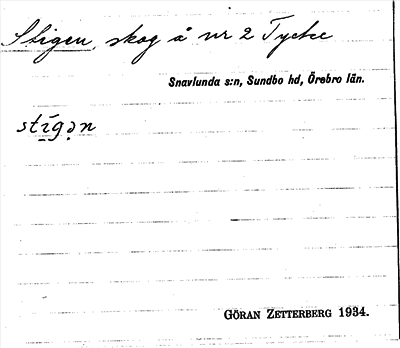 Stigen, skog å nr 2 Tycke
Snavlunda s:n, Sundbo hd, Örebro län.
stīgə̣n
GÖRAN ZETTERBERG 1934.